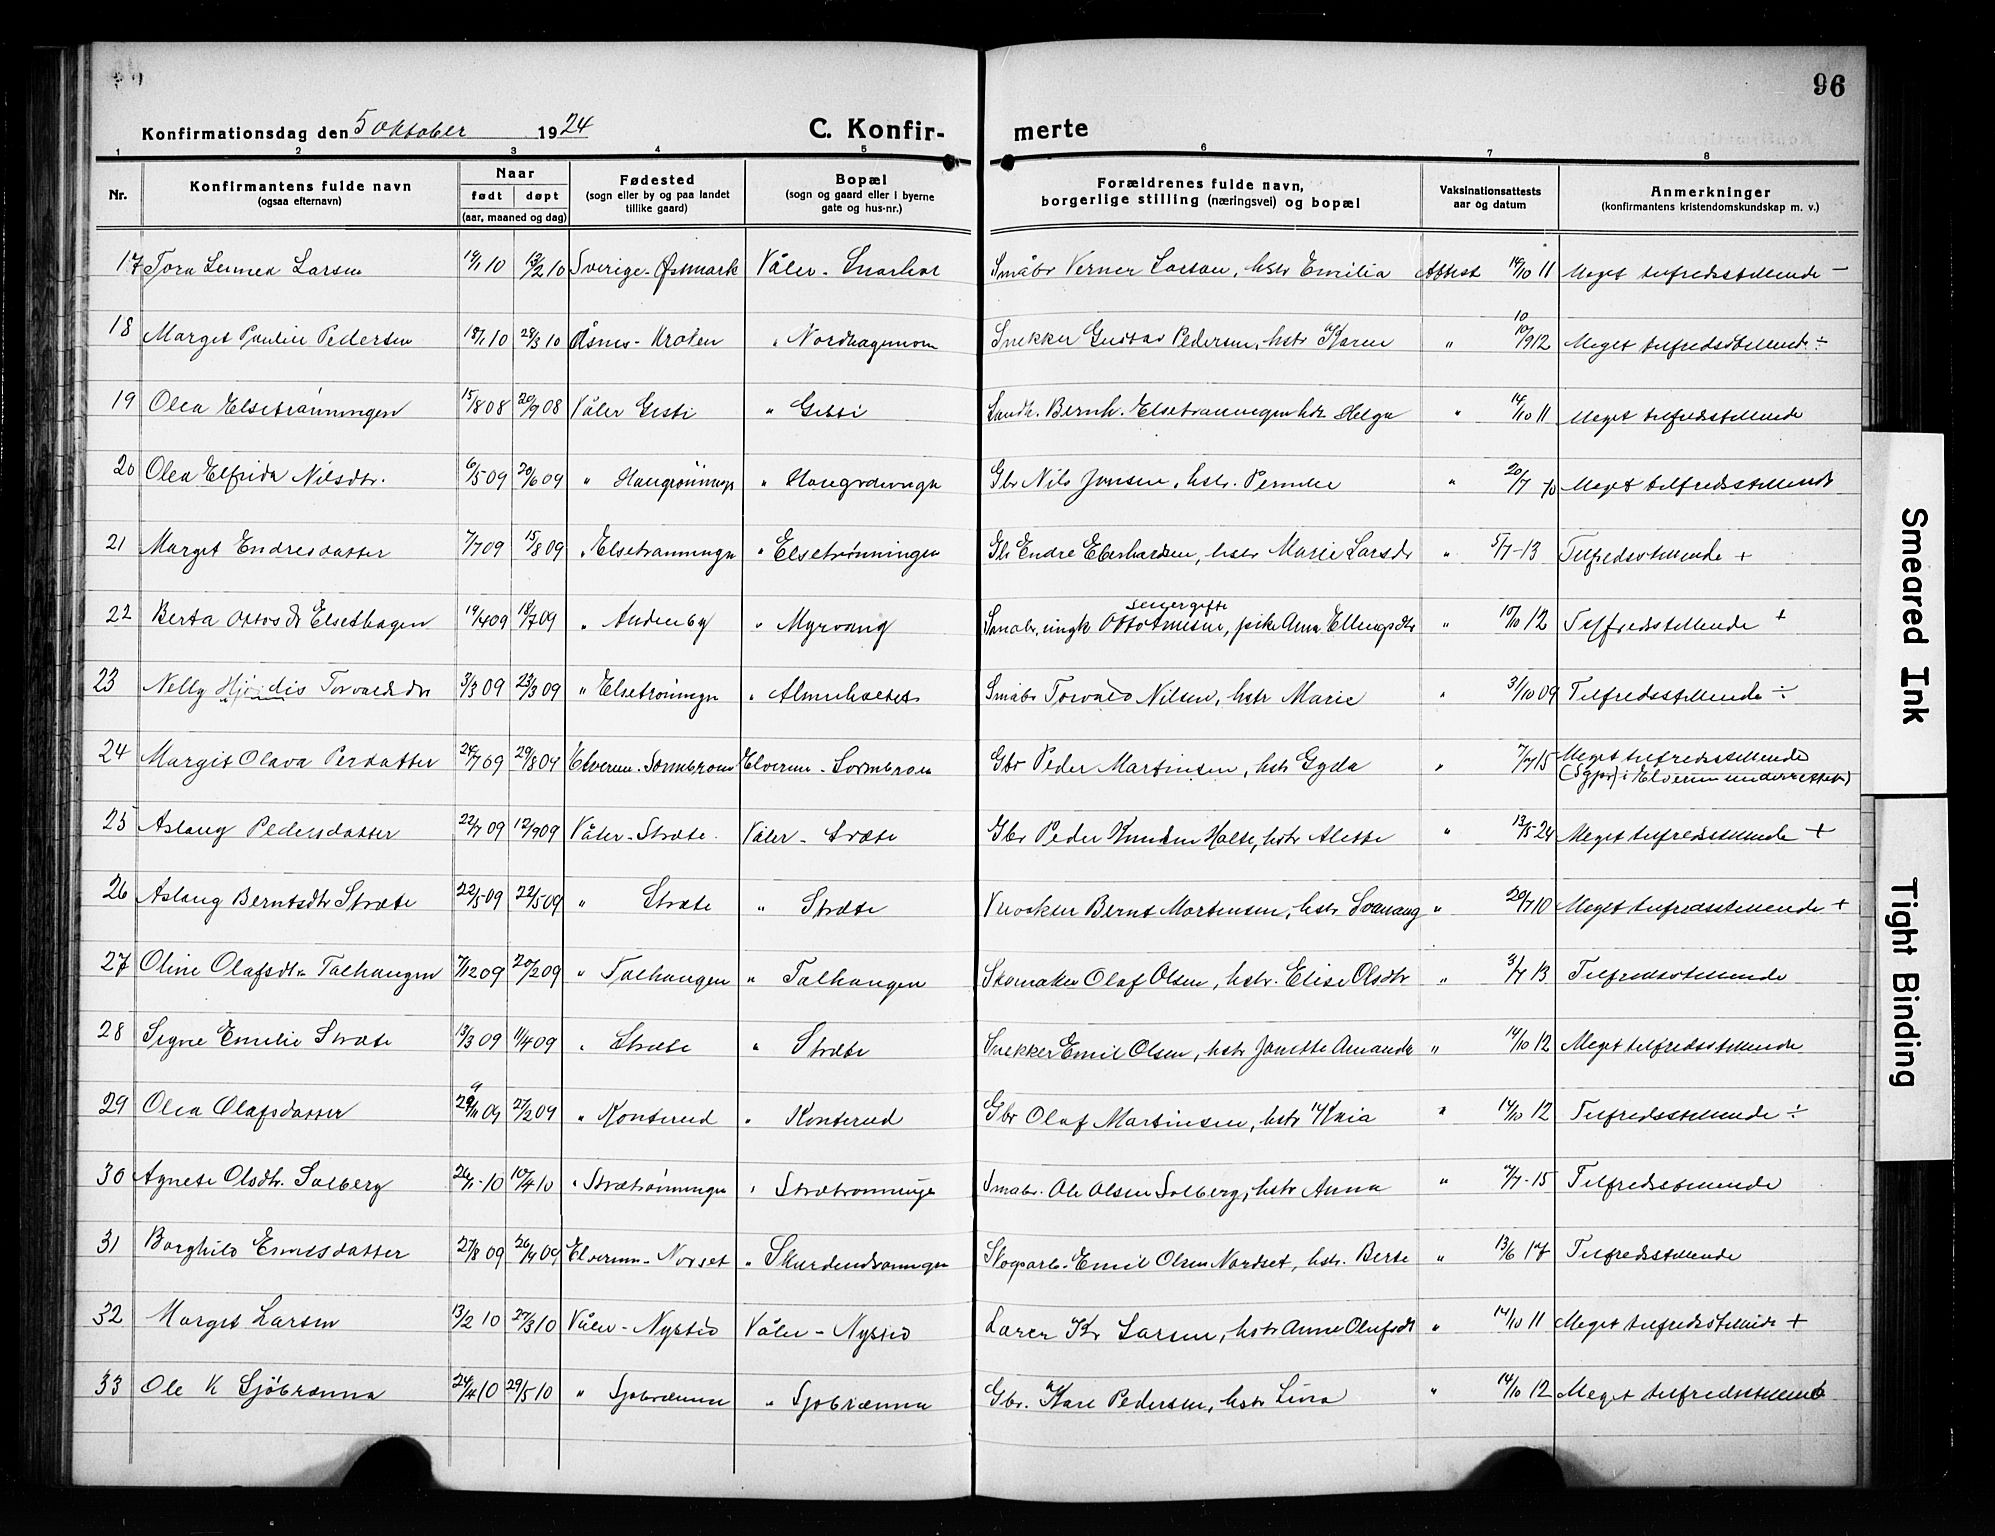 96
Konfirmationsdag den 5 oktober 1924
C. Konfir-
merte
1 2 3 4 5 6 7 8
Nr.
Konfirmantens fulde navn
(ogsaa efternavn)
Naar
født døpt
(aar, maaned og dag)
Fødested
(sogn eller by og paa landet
tillike gaard)
Bopæl
(sogn og gaard eller i byerne
gate og hus-nr.)
Forældrenes fulde navn,
borgerlige stilling (næringsvei) og bopæl
Vaksinationsattests
aar og datum
Anmerkninger
(konfirmantens kristendomskundskap m. v.)
17 Tora Larsen 13/2 10 Sverige - Østmark Våler - Småbr Verner Larsen, hstr Emilia Attest 14/10 11 Meget tilfredsstillende -
10
18 Marget Pauline Pedersen 18/1 10 28/3 10 Åsnes - Kroken " Snekker Gustav Pedersen, hstr Karen " 10/9 12 Meget tilfredsstillende ÷
19 Olea Elsetrønningen 15/8 08 20/9 08 Våler Gesti " Gesti Landh. Bernh. Elsetrønningen hstr Helga " 14/10 11 Meget tilfredsstillende
20 Olea Elfrida Nilsdtr. 6/5 09 20/6 09 " " Gbr Nils Jensen, hstr. Pernille " 20/7 10 Meget tilfredsstillende
21 Marget Endresdatter 7/7 09 15/8 09 " Elsetrønningen " Elsetrønningen Gbr Endre Eberhardsen, hstr Marie Larsdr " 5/7-13 Tilfredsstillende +
senergifte
22 Berta Ottosdr Elsethagen 19/4 09 18/7 09 " Andenby " Myrvang Småbr, ungk Otto Arnesen, pike Anna Ellingsdtr " 10/10 12 Tilfredsstillende +
23 Nelly Hjördis Torvaldsdr 3/3 09 23/3 09 " Elsetrønningen " Småbr Torvald Nilsen, hstr Marie " 3/10 09 Tilfredsstillende ÷
24 Margit Olava Perdatter 24/7 09 29/8 09 Elverum - Sormbroen Elverum - Sormbroen Gbr Peder Martinsen, hstr Gyda " 7/7 15 Meget tilfredsstillende
(Sgpr) i Elverum underrettet)
25 Aslaug Pedersdatter 22/7 09 12/9 09 Våler - Stræte Våler - Stræte Gbr Peder Knudsen Holte, hstr Alette " 13/5-24 Meget tilfredsstillende +
26 Aslaug Berntsdtr Stræte 22/5-09 22/5 09 " Stræte " Stræte Bernt Martinsen, hstr " 20/7 10 Meget tilfredsstillende +
27 Oline Olafsdtr Talhaugen 7/12 09 20/2 09 " Talhaugen " Talhaugen Skomaker Olaf Olsen, hstr. Elise Olsdtr " 3/7 13 Tilfredsstillende
28 Signe Emilie Stræte 13/3 09 11/4 09 " Stræte " Stræte Snekker Emil Olsen, hstr Janette Amanda " 14/10 12 Meget tilfredsstillende
29 Olea Olafsdatter 09 21/2 09 " Konterud " Konterud Gbr Olaf Martinsen, hstr Kaia " 14/10 12 Tilfredsstillende ÷
30 Agnete Olsdtr. Solberg 26/1-10 10/4 10 " Strætrønningen " Strætrønningen Småbr. Ole Olsen Solberg, hstr Anna " 7/7-15 Tilfredsstillende
31 Borghild Emilsdatter 27/8 09 26/9 09 Elverum - Norset " Skogsarb. Emil Olsen Nordset, hstr. Berte " 13/6 17 Tilfredsstillende
32 Marget Larsen 13/2 10 27/3 10 Våler - Nystid Våler - Nystid Lærer Kr Larsen, hstr Anne Olufsdt " 14/10 11 Meget tilfredsstillende +
33 Ole K Sjöbrænna 24/4 10 29/5 10 " Sjobrænna " Sjobrænna Gbr. Kare Pedersen, hstr Lina " 14/10 12 Meget tilfredsstillende
Smeared Ink
Tight Binding